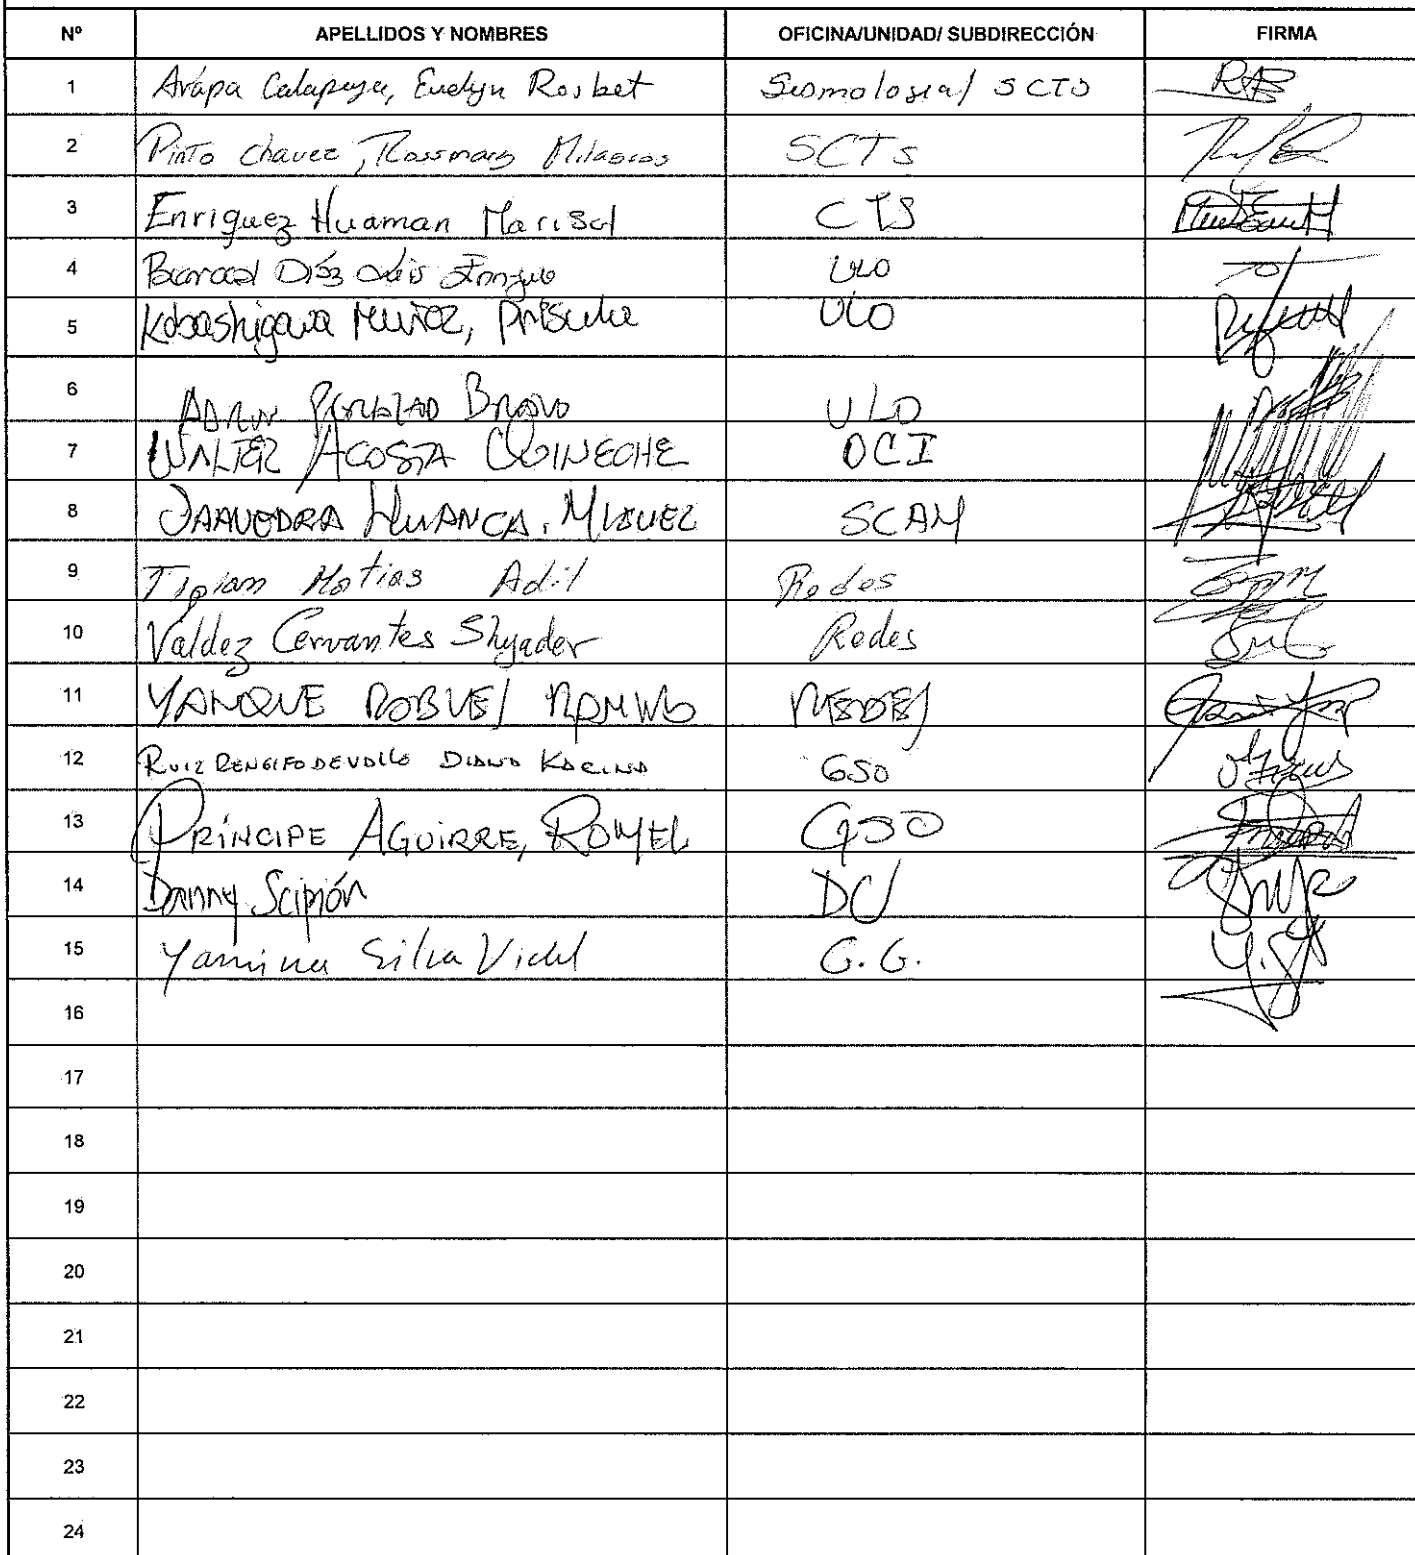 Nº APELLIDOS Y NOMBRES OFICINA/UNIDAD/ SUBDIRECCIÓN FIRMA
1 Arapa Calapuja, Evelyn Rosbet Sismologia/ SCTS
2 Pinto chavez, Rossmary Milagros SCTS
3 Enriquez Huaman Marisol CTS
4 ULO
5 Kobashigawa Muñoz, ULO
6 Bravo ULO
7 WALTER ACOSTA QUINECHE OCI
8 SAAVEDRA HUANCA, MIGUEL SCAH
9 Matias Adil Redes
10 Valdez Cervantes Shyader Redes
11 YANQUE ROBLES REDES
12 RUIZ RENGIFO DEVOLLE DIANA KARINA GSO
13 PRÍNCIPE AGUIRRE, ROMEL GSO
14 Danny Scipión DC
15 Yamina Silva Vidal G.G.
16
17
18
19
20
21
22
23
24